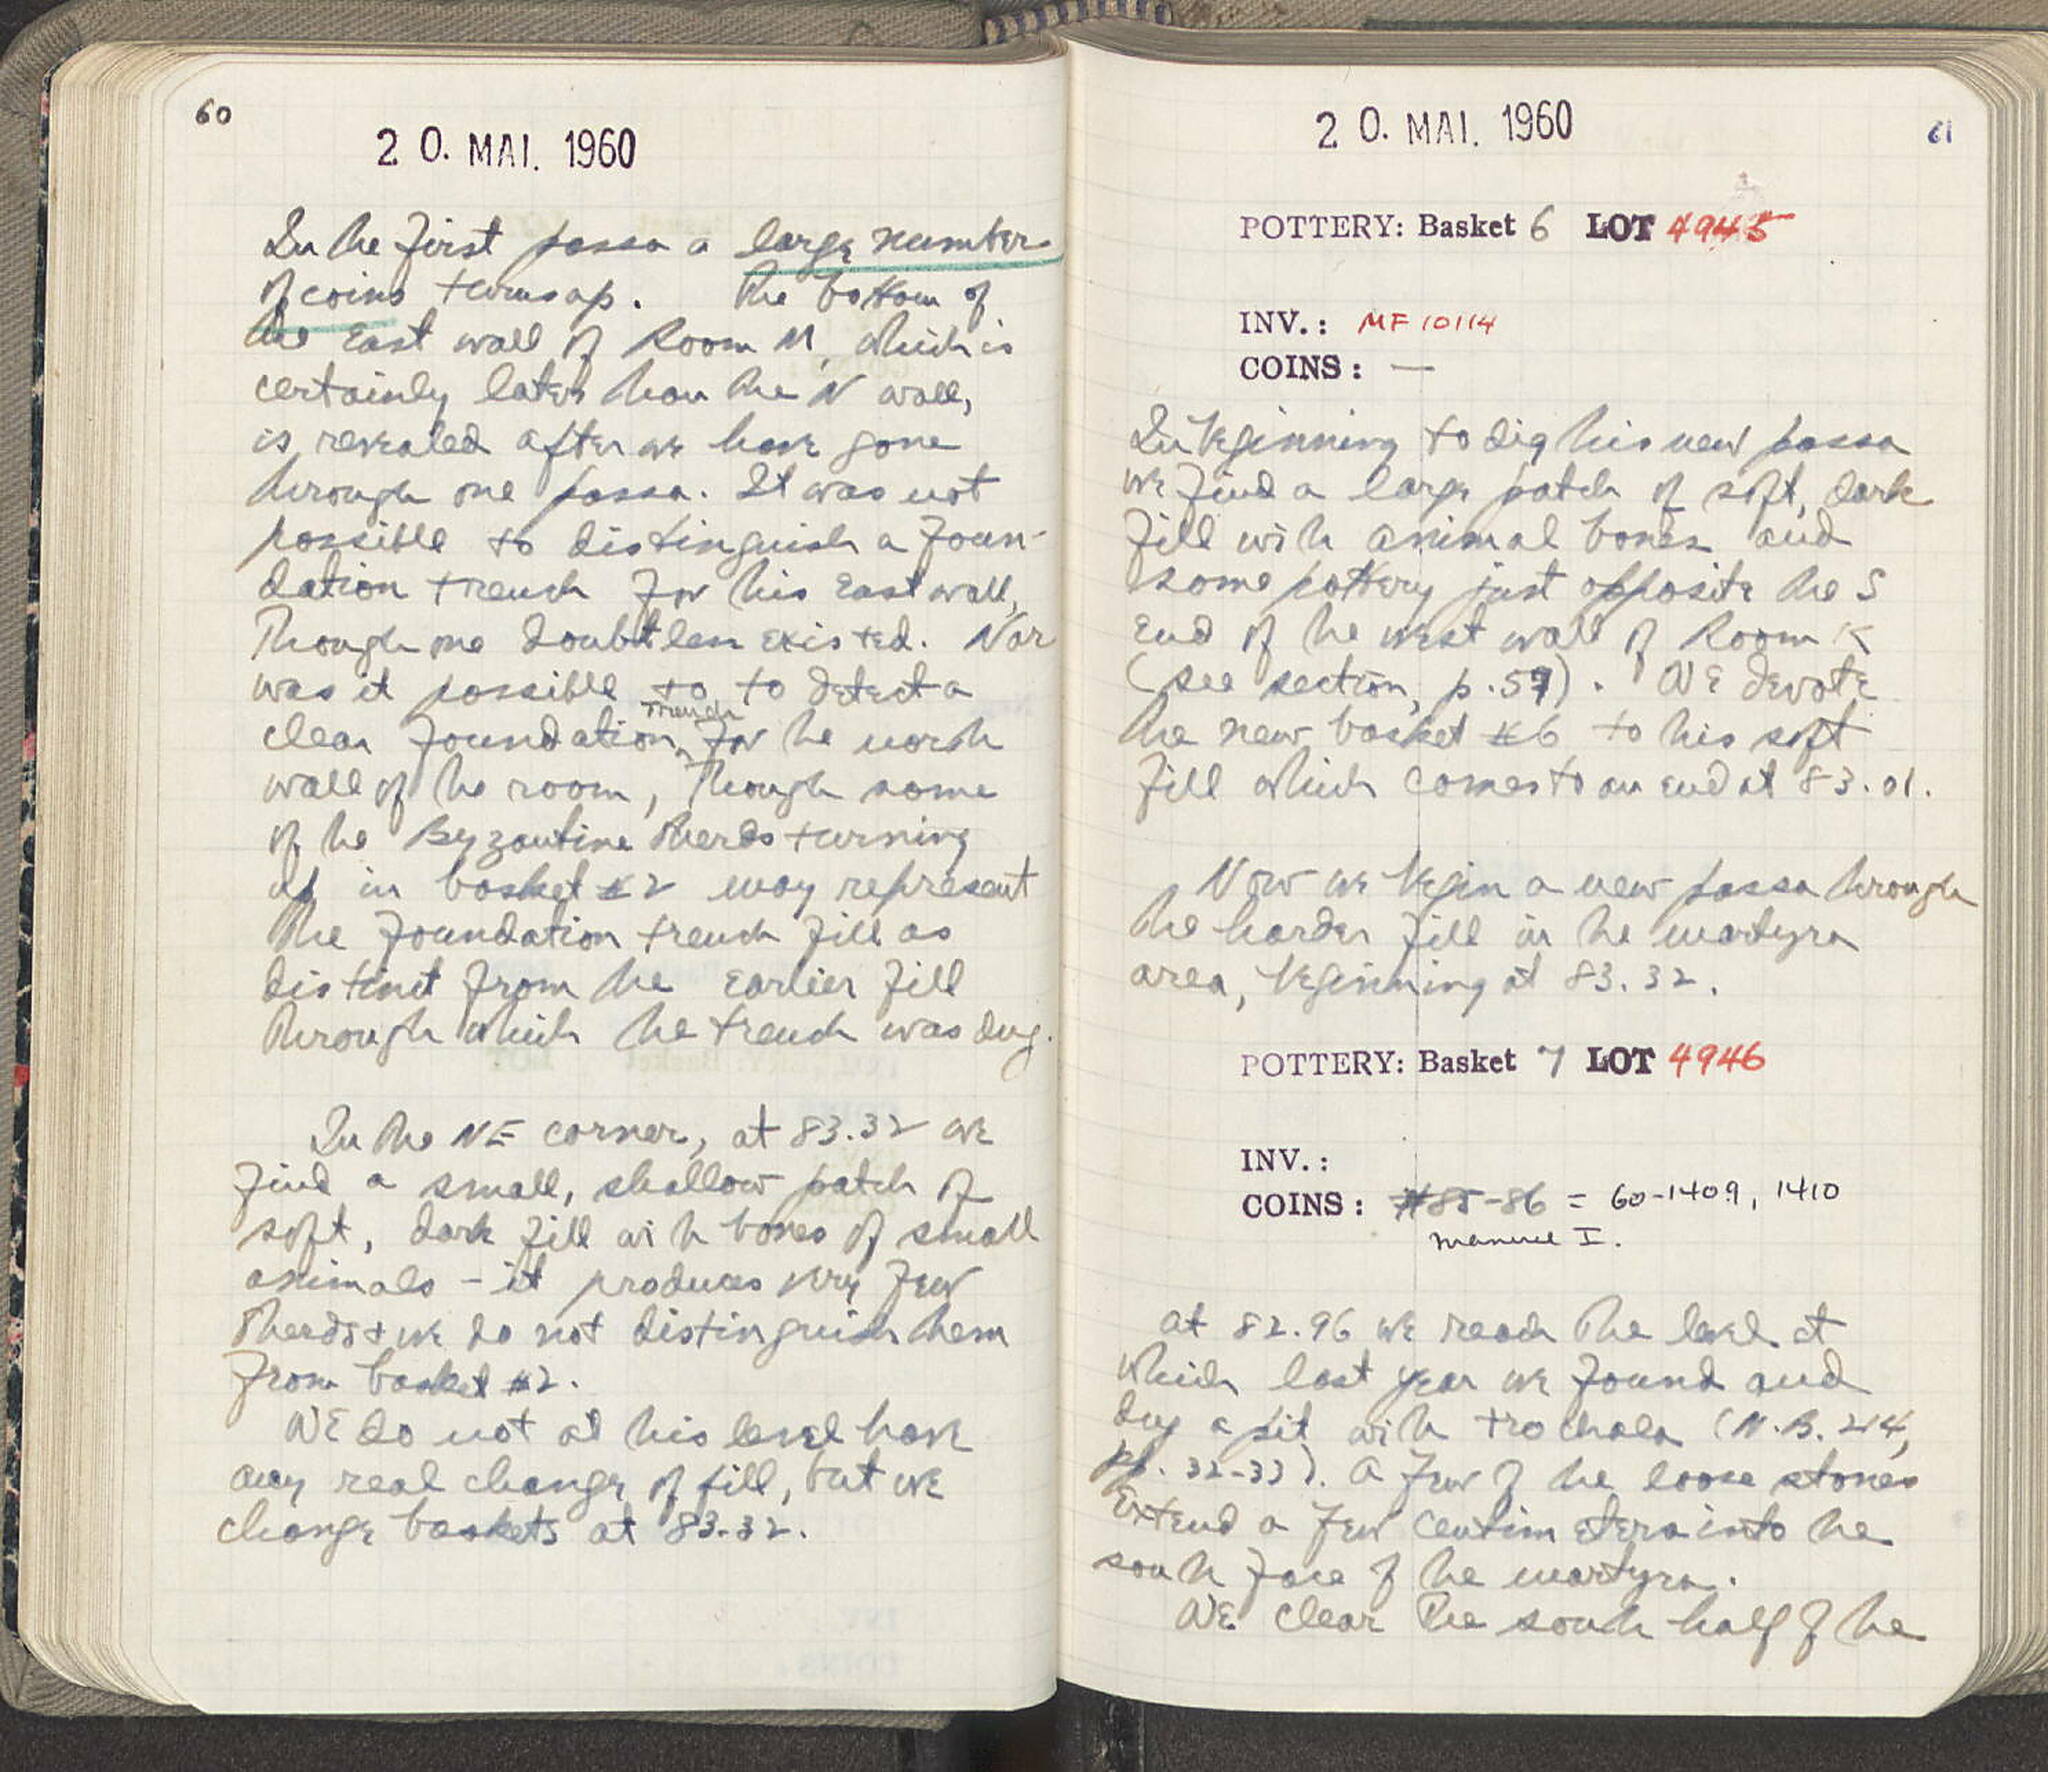 60
20. MAI. 1960
In the first passa a large number
of coins turns up. The bottom of
the East wall of Room M, which is
certainly later than the N wall,
is revealed after we have gone
through one passa. It was not
possible to distinguish a foun-
dation trench for this East wall,
though one doubtless existed. Nor
was it possible to to detect a
clear foundation trench for the north
wall of the room, though some
of the Byzantine sherds turning
up in basket #2 may represent
the foundation trench fill as
distinct from the earlier fill
through which the trench was dug.
In the NE corner, at 83.32 we
find a small, shallow patch of
soft, dark fill with bones of small
animals - it produces very few
sherds + we do not distinguish them
from basket #2.
We do not at this level have
any real change of fill, but we
change baskets at 83.32.
61
20. MAI. 1960
POTTERY: Basket 6 LOT 4945
INV.: MF 10114
COINS: —
In beginning to dig this new passa
we find a large patch of soft, dark
fill with animal bones and
some pottery just opposite the S
end of the west wall of Room K
(see section, p. 59). We devote
the new basket #6 to this soft
fill which comes to an end at 83.01.
Now we begin a new passa through
the harder fill in the martyra
area, beginning at 83.32.
POTTERY: Basket 7 LOT 4946
INV.:
COINS: #85-86 = 60-1409, 1410
Manuel I.
At 82.96 we reach the level at
which last year we found and
dug a pit with trochala (N.B. 214,
pp. 32-33). A few of the loose stones
extend a few centimeters into the
south face of the martyra.
We clear the south half of the